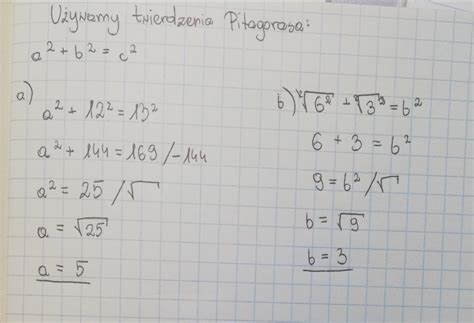 Używamy twierdzenia Pitagorasa:
a² + b² = c²
a)
a² + 12² = 13²
a² + 144 = 169 /-144
a² = 25 /√
a = √25
a = 5
b) ²√6² + ³√3³ = b²
6 + 3 = b²
9 = b² /√
b = √9
b = 3